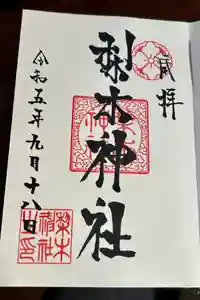 奉拝
梨木神社
令和五年九月十八日
梨木神社之印